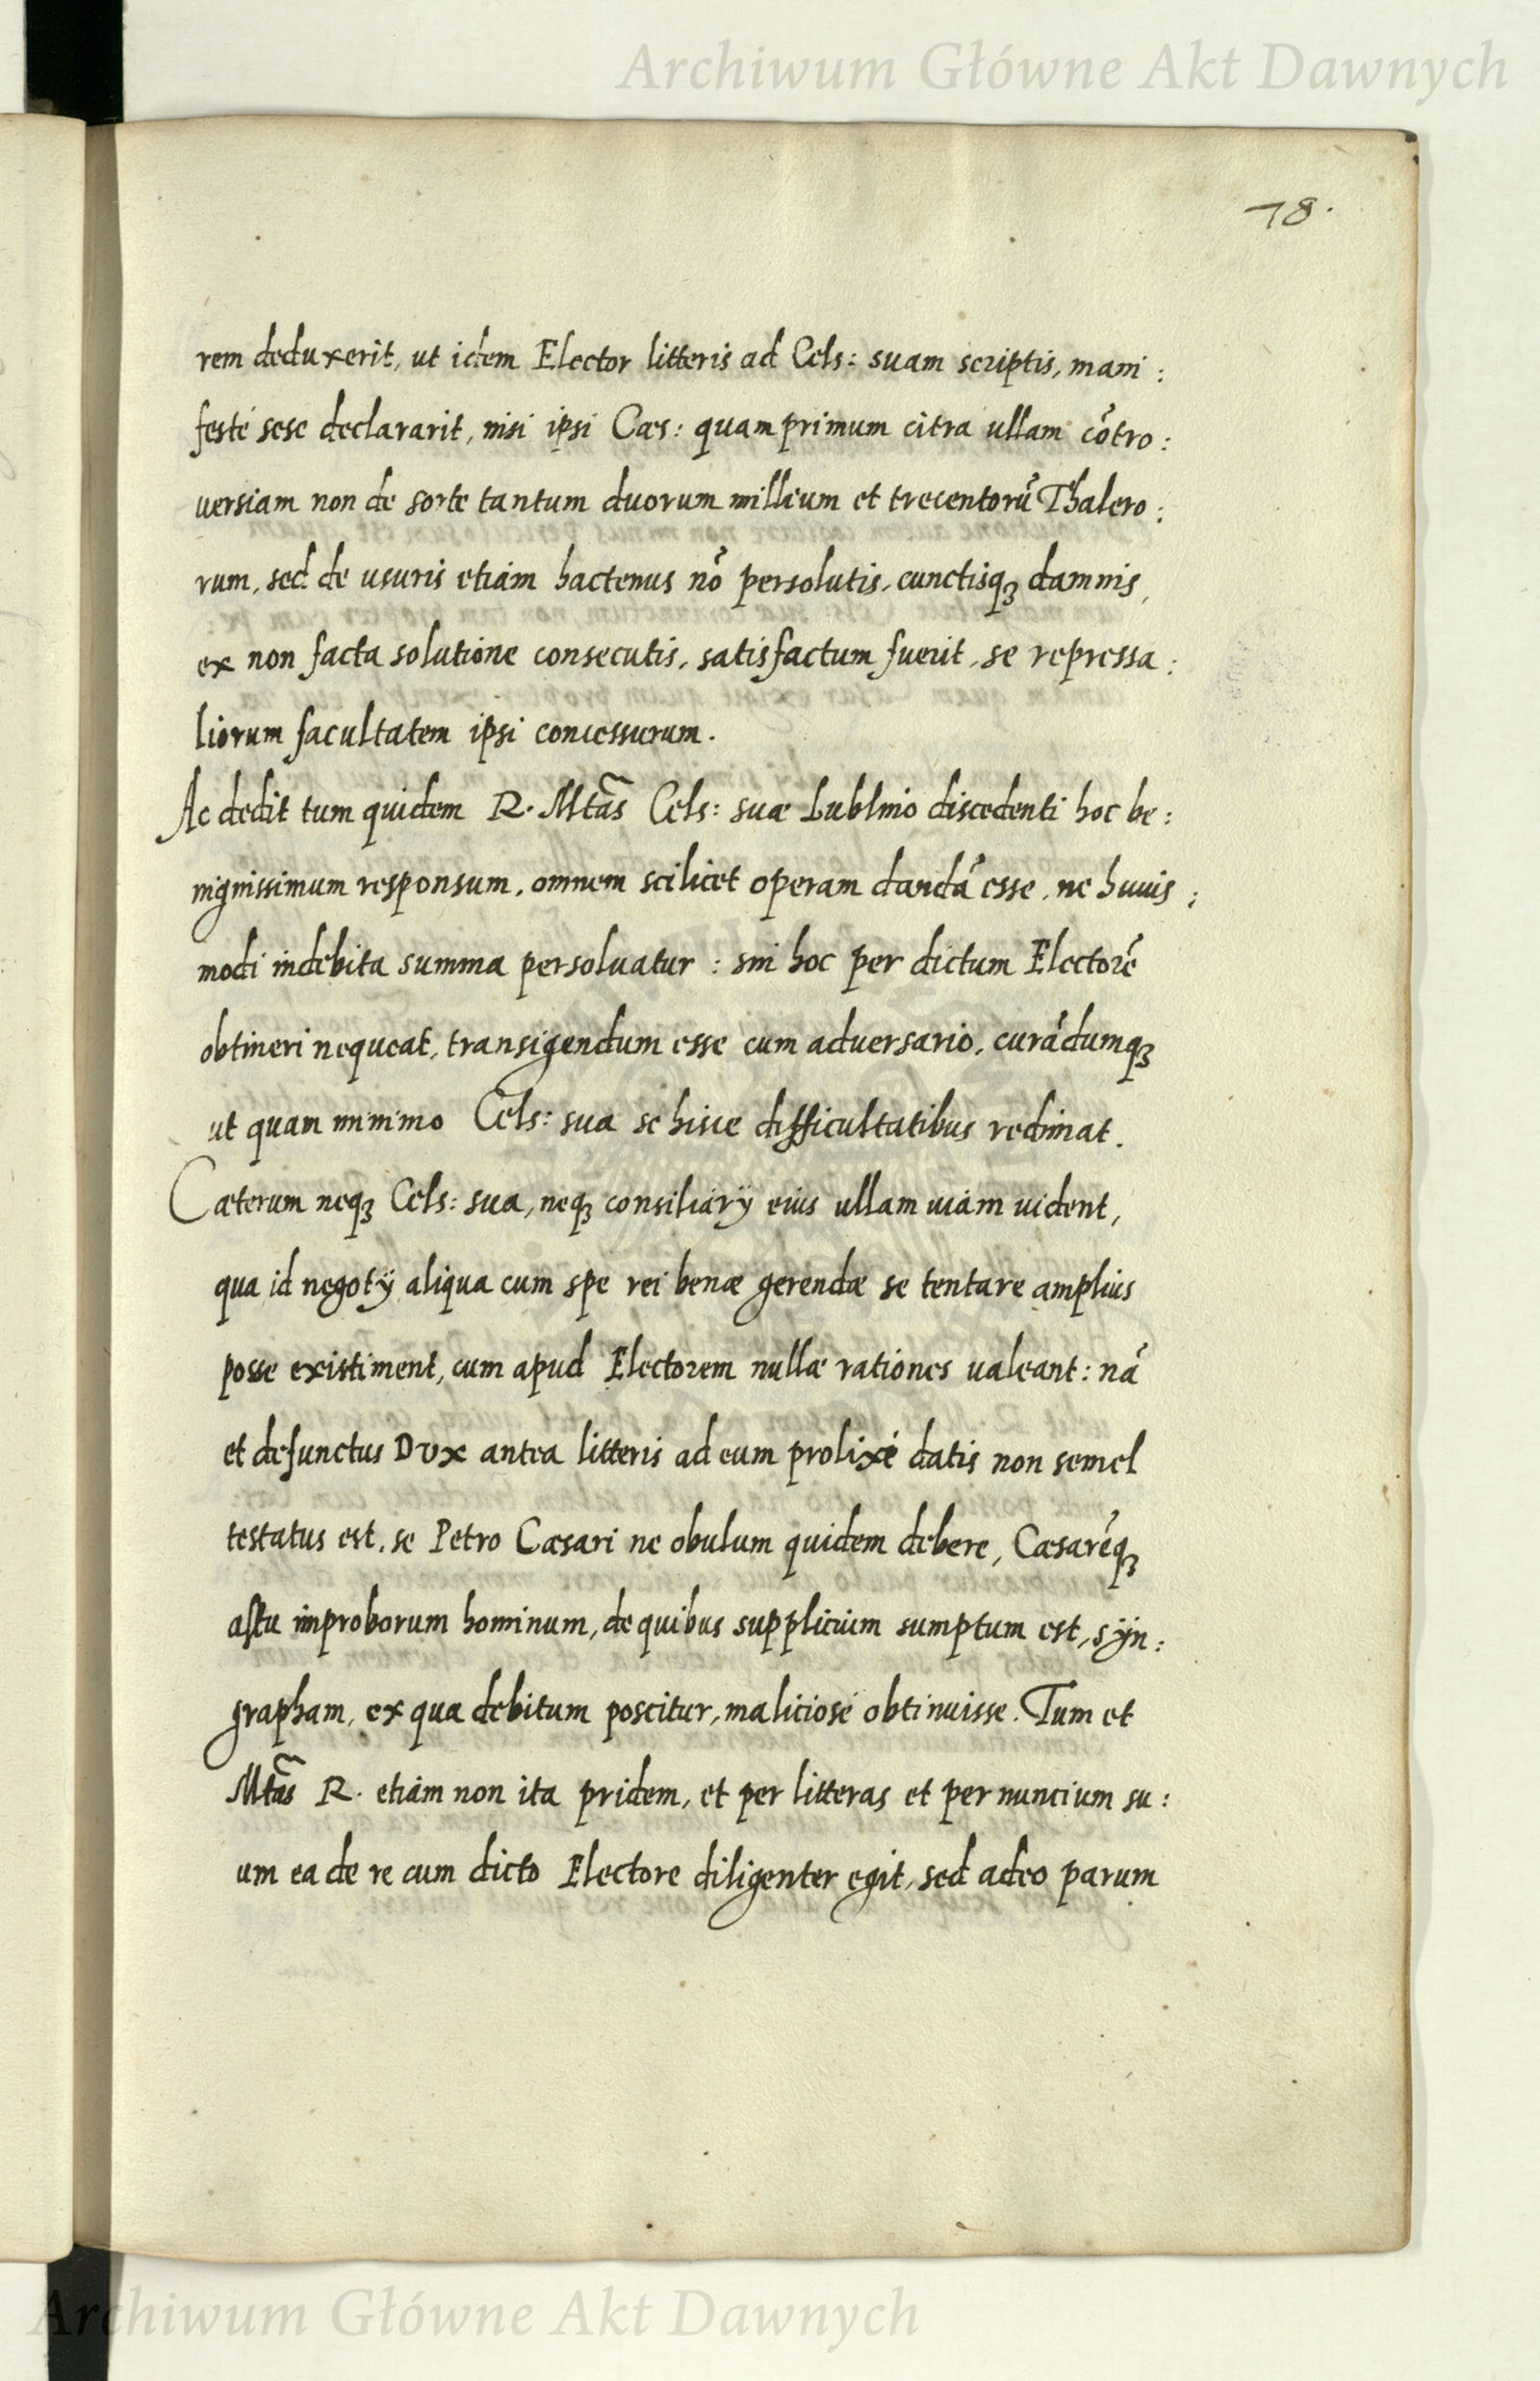 Archiwum Główne Akt Dawnych
78.
rem deduxerit, ut idem Elector litteris ad Cels: suam scriptis, mani:
festé sese declararit, nisi ipsi Caes: quamprimum citra ullam cõtro:
uersiam non de sorte tantum duorum millium et trecentorũ Thalero:
rum, sed de usuris etiam hactenus nõ persolutis, cunctisqꝫ damnis,
ex non facta solutione consecutis, satisfactum fuerit, se repressa:
liorum facultatem ipsi concessurum.
Ac dedit tum quidem R. Mtãs Cels: suæ Lublino discedenti hoc be:
nignissimum responsum, omnem scilicet operam dandã esse, ne huius:
modi indebita summa persoluatur: sin hoc per dictum Electorẽ
obtineri nequeat, transigendum esse cum aduersario, curãdumqꝫ
ut quan minimo Cels: sua se hisce difficultatibus redimat.
Cæterum neqꝫ Cels: sua, neqꝫ consiliarÿ eius ullam uiam uident,
qua id negotÿ aliqua cum spe rei benæ gerendæ se tentare amplius
posse existiment, cum apud Electorem nullæ rationes ualeant: nã
et defunctus Dux antea litteris ad eum prolixé datis non semel
testatus est, se Petro Cæsari ne obulum quidem debere, Cæsarẽqꝫ
astu improborum hominum, de quibus supplicium sumptum est, sÿn:
grapham, ex qua debitum poscitur, maliciosé obtinuisse. Tum et
Mtãs R. etiam non ita pridem, et per litteras et per nuncium su:
um ea de re cum dicto Electore diligenter egit, sed adeo parum
Archiwum Główne Akt Dawnych